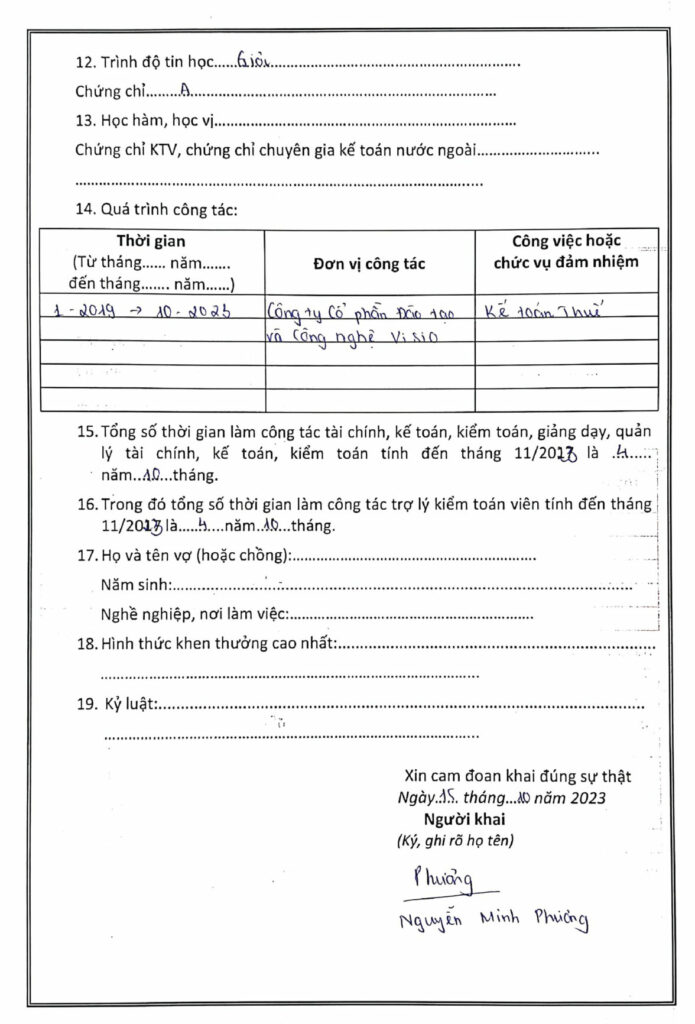 12. Trình độ tin học.....Giỏi..................................................
Chứng chỉ.........A..................................................
13. Học hàm, học vị..................................................
Chứng chỉ KTV, chứng chỉ chuyên gia kế toán nước ngoài..............................
..................................................
14. Quá trình công tác:
Thời gian
(Từ tháng...... năm.......
đến tháng....... năm......)
Đơn vị công tác
Công việc hoặc
chức vụ đảm nhiệm
1 - 2019 → 10 - 2023
Công ty Cổ phần Đào tạo
và Công nghệ Visio
Kế toán Thuế
15. Tổng số thời gian làm công tác tài chính, kế toán, kiểm toán, giảng dạy, quản
lý tài chính, kế toán, kiểm toán tính đến tháng 11/2023 là .4.....
năm..10...tháng.
16. Trong đó tổng số thời gian làm công tác trợ lý kiểm toán viên tính đến tháng
11/2023 là.....4....năm..10...tháng.
17. Họ và tên vợ (hoặc chồng):..................................................
Năm sinh:..................................................
Nghề nghiệp, nơi làm việc:..................................................
18. Hình thức khen thưởng cao nhất:..................................................
..................................................
19. Kỷ luật:..................................................
..................................................
Xin cam đoan khai đúng sự thật
Ngày.15. tháng...10 năm 2023
Người khai
(Ký, ghi rõ họ tên)
Phương
Nguyễn Minh Phương